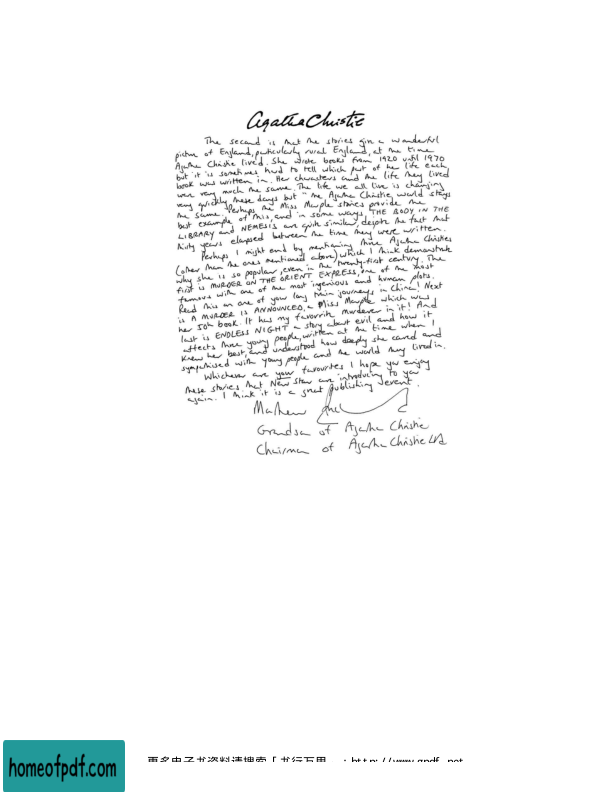 Agatha Christie
The second is that the stories give a wonderful
picture of England, particularly rural England, at the time
Agatha Christie lived. She wrote books from 1920 until 1970
but it is sometimes hard to tell which part of her life each
book was written in. Her characters and the life they lived
were very much the same. The life we all live is changing
very quickly these days but "the Agatha Christie" world stays
the same. Perhaps the Miss Marple stories provide the
best example of this, and in some ways THE BODY IN THE
LIBRARY and NEMESIS are quite similar, despite the fact that
thirty years elapsed between the time they were written.
Perhaps I might end by mentioning three Agatha Christies
(other than the ones mentioned above) which I think demonstrate
why she is so popular, even in the twenty-first century. The
first is MURDER ON THE ORIENT EXPRESS, one of the most
famous with one of the most ingenious and human plots.
Read this on one of your long train journeys in China! Next
is A MURDER IS ANNOUNCED, a Miss Marple which was
her 50th book. It has my favourite murderer in it! And
last is ENDLESS NIGHT a story about evil and how it
affects three young people, written at the time when I
knew her best, and understood how deeply she cared and
sympathised with young people and the world they lived in.
Whichever are your favourites I hope you enjoy
these stories that New Star are introducing to you
again. I think it is a great publishing event.
Mathew
Grandson of Agatha Christie
Chairman of Agatha Christie Ltd
更多电子书资料请搜索「书行万里
homeofpdf.com